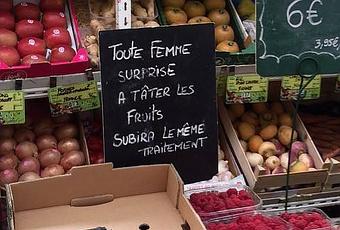 TOUTE FEMME
SURPRISE
A TÂTER LES
FRUITS
SUBIRA LE MÊME
TRAITEMENT
6€
3,95€